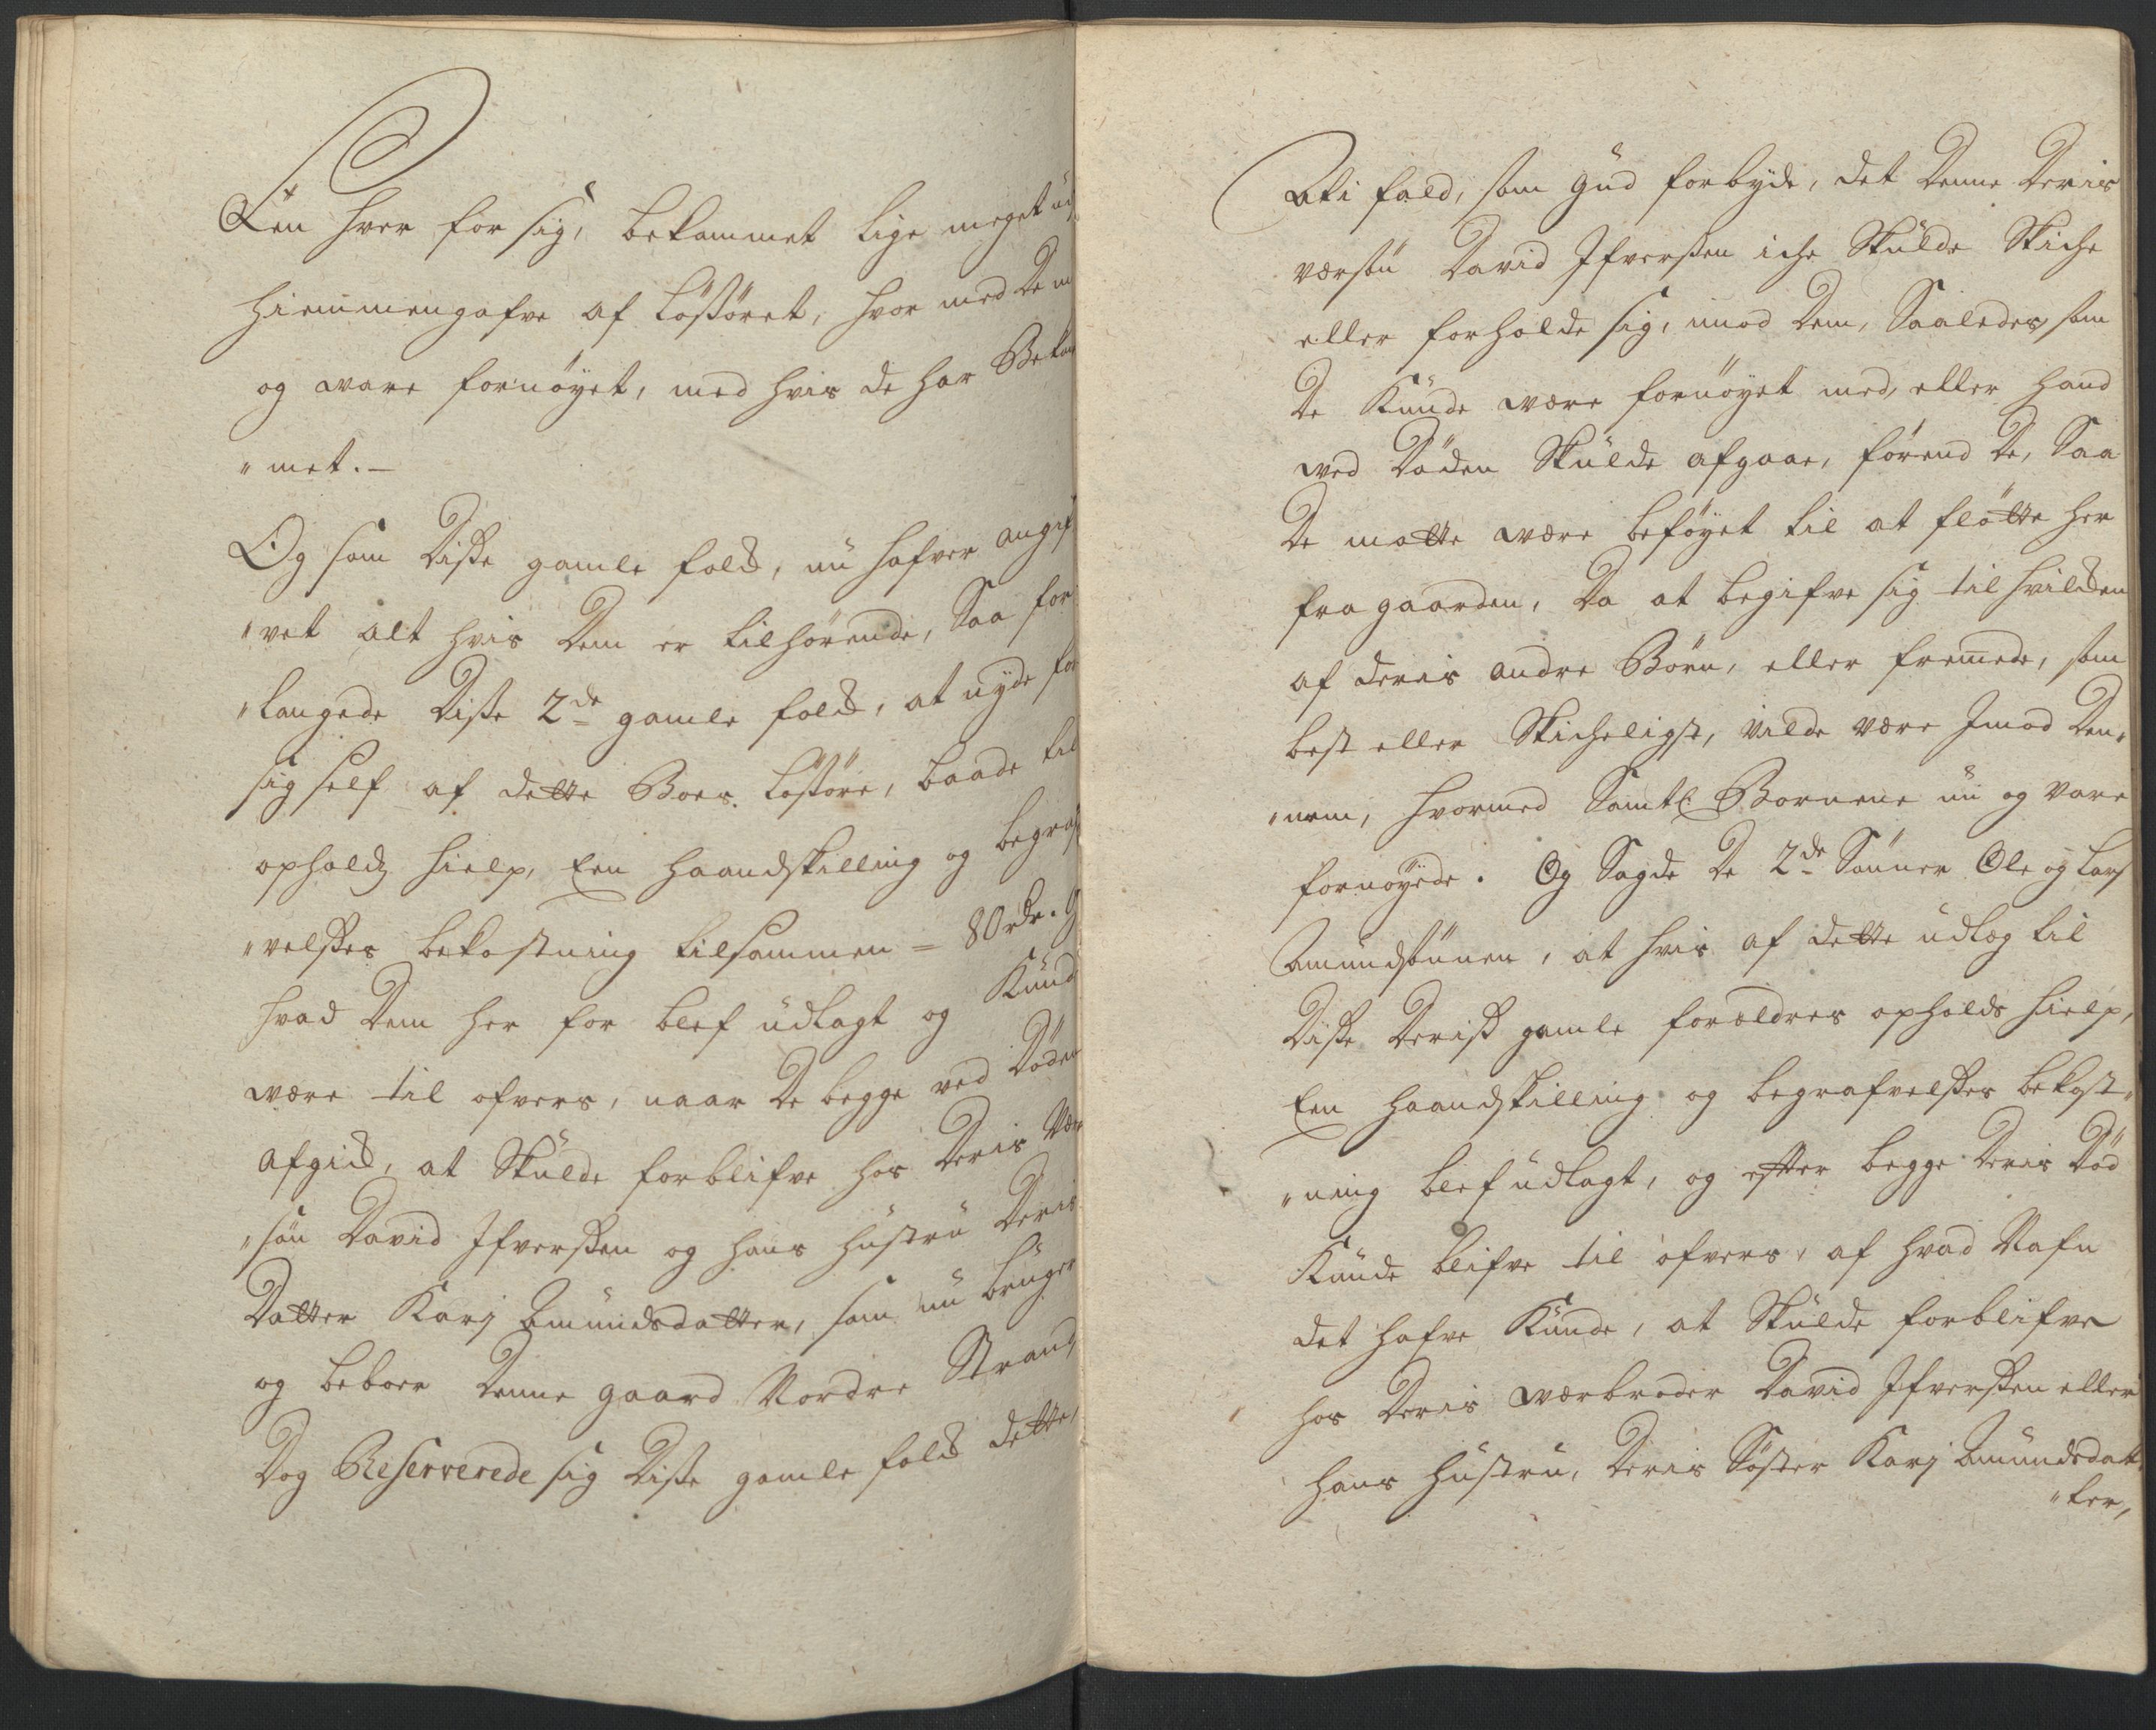 Een hver for sig, bekommet lige meget ud
hiemmengafve af Løßøret, hvor med de
og ware fornøyet, med hvis de har Bekom
"met.-
Og som Diße gamle folck, nu hafver angif
"vet alt hvis Dem er tilhørende, Saa for
"langede Diße 2de gamle folck, at nyde for
sig self af dette Boes Løßøre, baade til
opholdz hielp, Een haandskilling og begraf
"velßes bekostning tilsammen = 80 rdr. Og
hvad Dem her for blef udlagt og Kund
være til ofvers, naar De begge ved Døden
afgick, at Skulde forblifve hos Deris Vær
"søn David Ifverßen og hans hustru Deris
Datter Karj Amundsdatter, som nu bruger
og beboer Denne gaard Nordre Strand,
Dog Reserverede sig Diße gamle folck dette,
At i fald, som Gud forbyde, det Denne Deris
værsøn David Ifverßen iche Skulde Skiche
eller forholde sig, imod Dem, Saaledes, som
De Kunde være fornøyet med, eller hand
ved Døden Skulde afgaae, førend De, Saa
De motte være beføyet til at fløtte her
fra gaarden, Da at begifve sig til hvilcken
af deris andre Børn, eller fremede, som
best eller Skicheligst, vilde være Imod Den,
"nem, hvormed Samtl: Børnene nu og vare
fornøyede. Og Sagde De 2de Sønner Ole og Lars
Amundsønner, at hvis af dette udlæg til
Diße Deriß gamle forældres opholds hielp,
Een haandskilling og begrafvelßes bekost,
"ning blef udlagt, og efter begge Deris Død
Kunde blifve til ofvers, af hvad Nafn
det hafve Kunde, at Skulde forblifve
hos Deris værbroder David Ifverßen eller
hans hustru, Deris Søster Karj Amundsdat,
"ter,